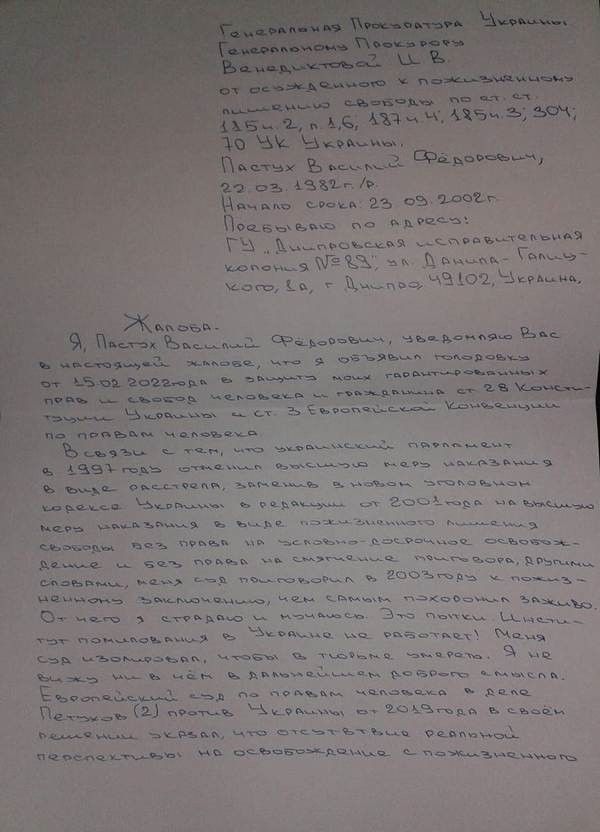 Генеральная Прокуратура Украины
Генеральному Прокурору
Венедиктовой И. В.
от осужденного к пожизненному
лишению свободы по ст. ст.
115 ч. 2, п. 1,6; 187 ч. 4; 185 ч. 3; 304;
70 УК Украины,
Пастух Василий Фёдорович,
22. 03. 1982 г./р.
Начало срока: 23. 09. 2002 г.
Пребываю по адресу:
ГУ „Днипровская исправительная
колония № 89", ул. Данила-Галиц-
кого, 1а, г. Днипро, 49102, Украина,
Жалоба.
Я, Пастух Василий Фёдорович, уведомляю Вас
в настоящей жалобе, что я объявил голодовку
от 15.02 2022 года в защиту моих гарантированных
прав и свобод человека и гражданина ст 28 Консти-
туции Украины и ст. 3 Европейской Конвенции
по правам человека.
В связи с тем, что украинский парламент
в 1997 году отменил высшую меру наказания
в виде расстрела, заменив в новом уголовном
кодексе Украины в редакции от 2001 года на высшую
меру наказания в виде пожизненного лишения
свободы без права на условно-досрочное освобож-
дение и без права на смягчение приговора, другими
словами, меня суд приговорил в 2003 году к пожиз-
ненному заключению, чем самым похоронил заживо.
От чего я страдаю и мучаюсь. Это пытки. Инсти-
тут помилования в Украине не работает! Меня
суд изолировал, чтобы в тюрьме умереть. Я не
вижу ни в чём в дальнейшем доброго смысла.
Европейский суд по правам человека в деле
Петухов (2) против Украины от 2019 года в своём
решении указал, что отсутствие реальной
перспективы на освобождение с пожизненного